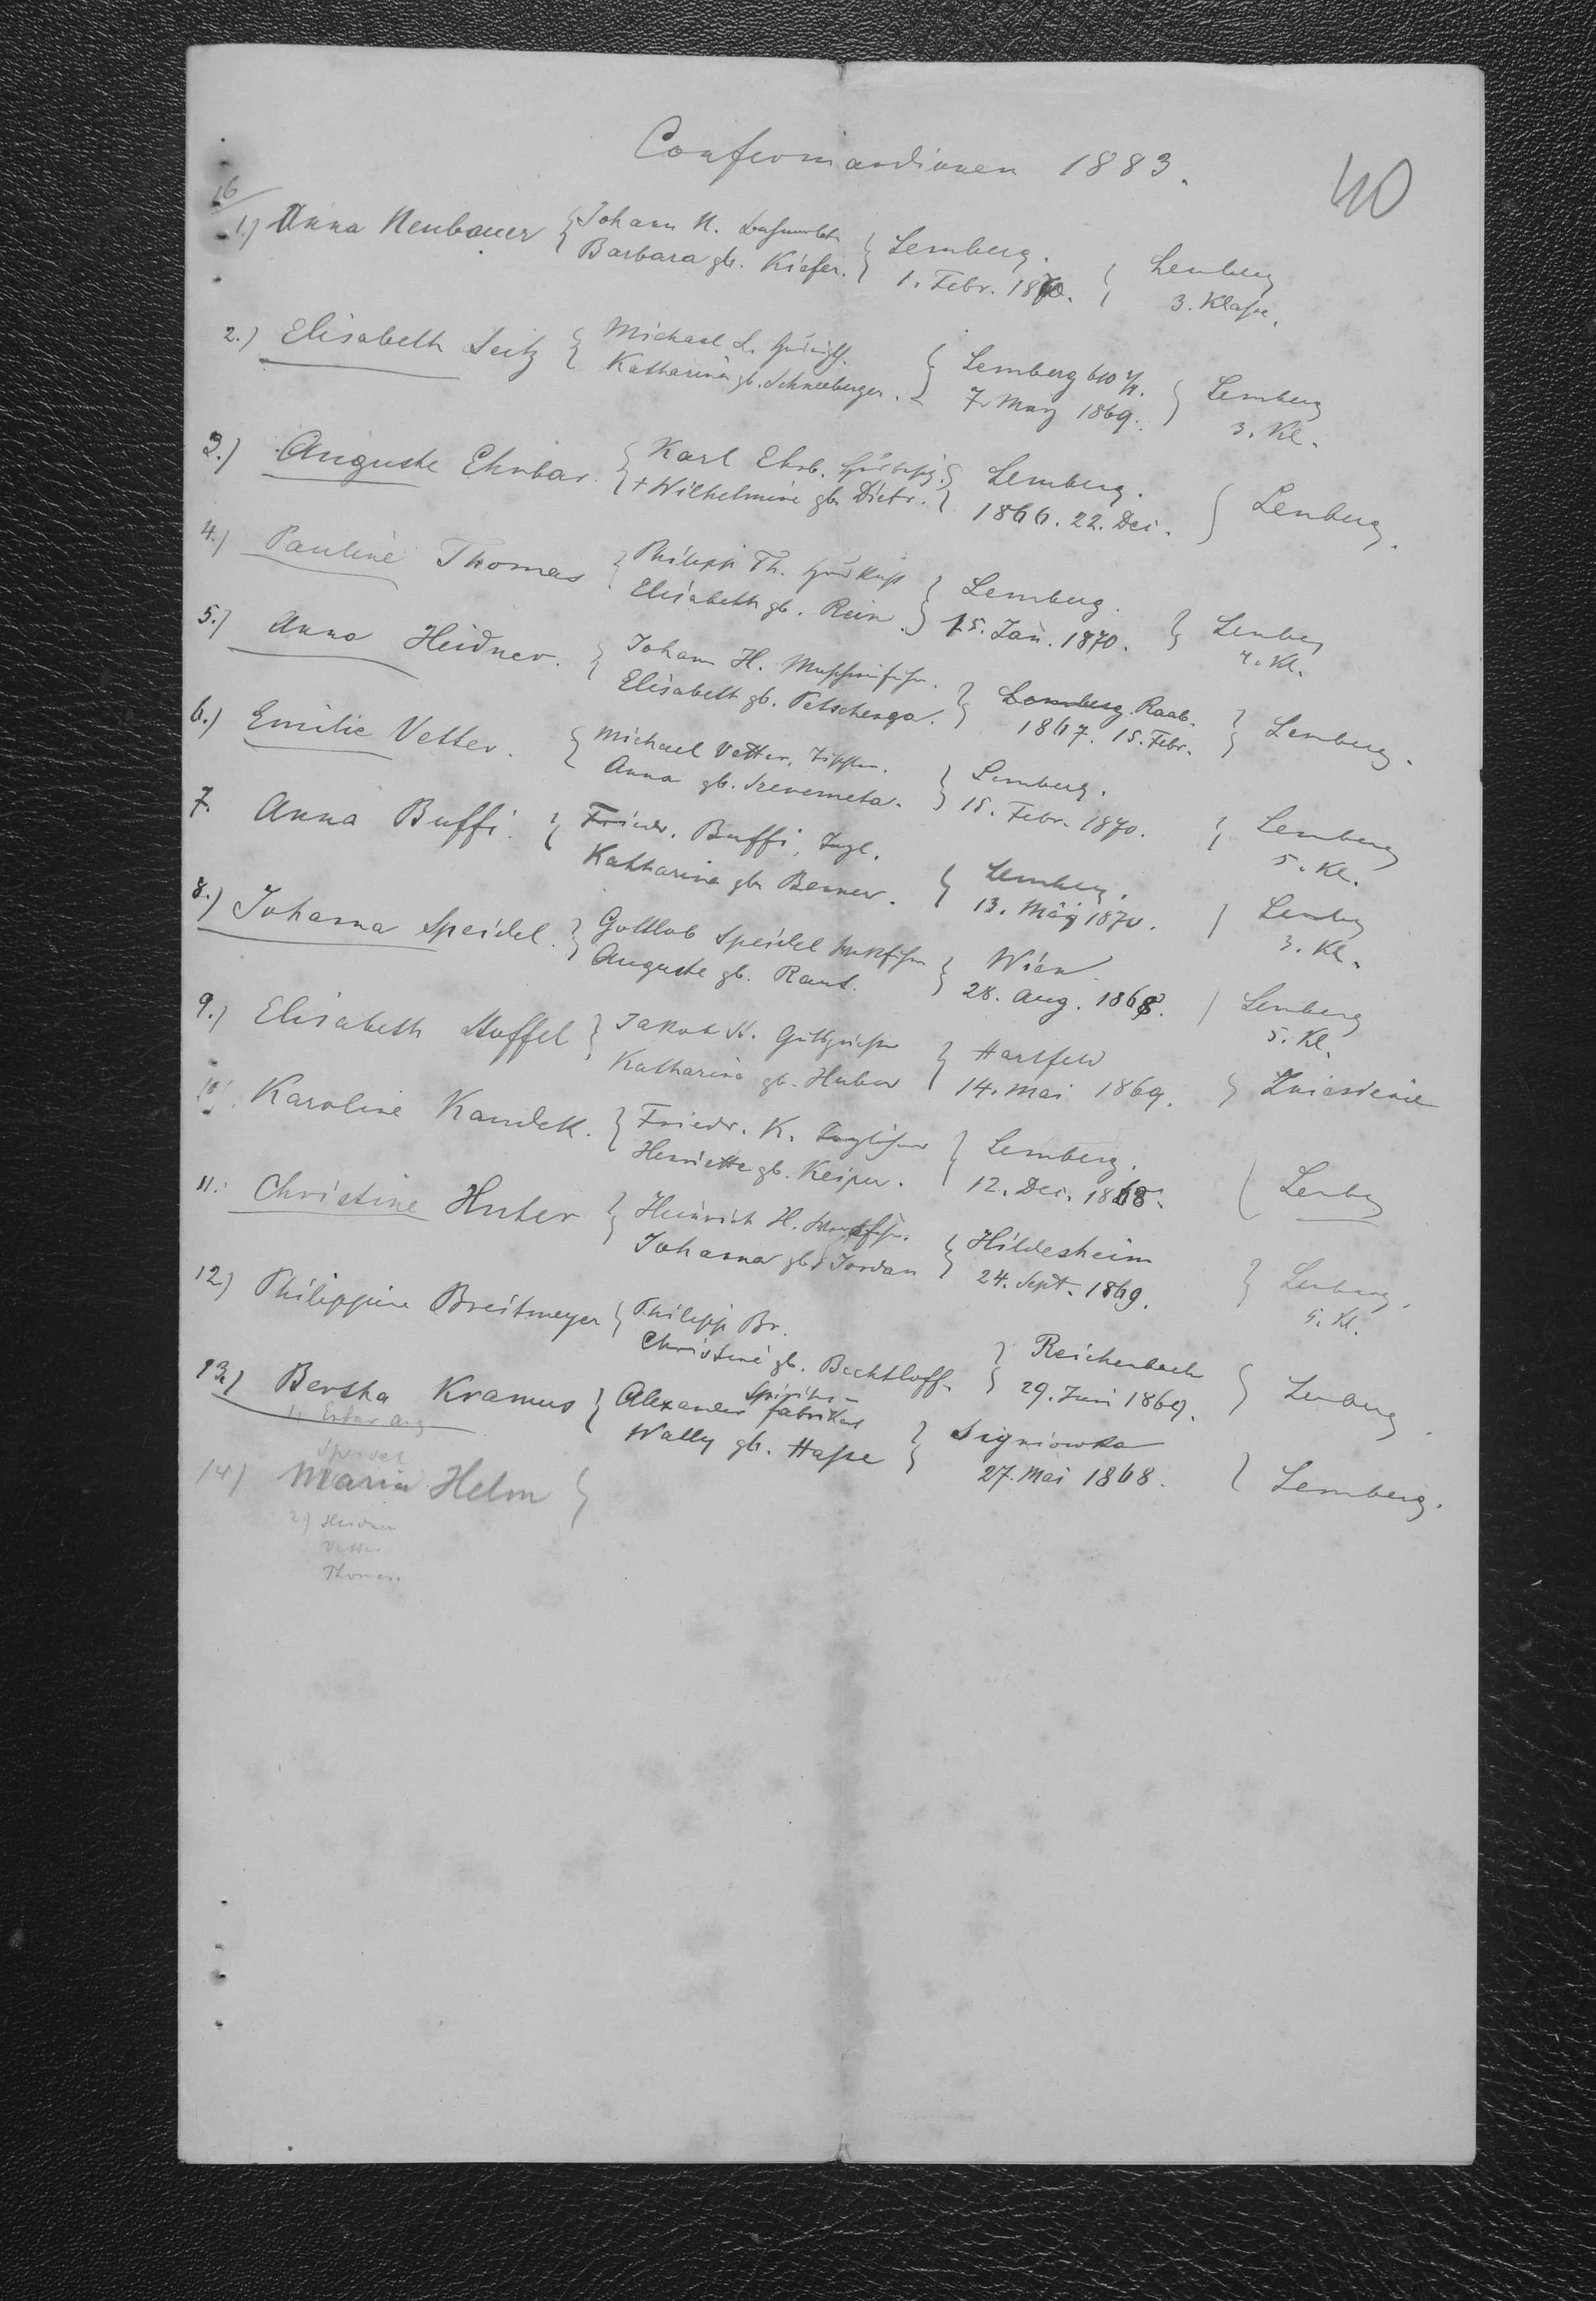 Confirmandinnen 1883.
40
16
1.) Anna Neubauer { Johann N. { Lemberg. { Lemberg
Barbara gb. Kiefer. 1. Febr. 1870. 3. Klasse.
2.) Elisabeth Seitz { Michael S. { Lemberg 610 { Lemberg
Katharina gb. Schneeberger. 7. März 1869. 3. Kl.
3.) Auguste Ehrbar. { Karl Ehrb. { Lemberg. { Lemberg.
+ Wilhelmine gb. Dietr. 1866. 22. Dec.
4.) Pauline Thomas { Philipp Th. { Lemberg. { Lemberg
Elisabeth gb. Rein. 15. Jan. 1870. 4. Kl.
5.) Anna Heidner. { Johann H. { Lemberg. Raab. { Lemberg.
Elisabeth gb. Petschenga. 1867. 15. Febr.
6.) Emilie Vetter. { Michael Vetter, { Lemberg. { Lemberg
Anna gb. 15. Febr. 1870. 5. Kl.
7. Anna Buffi. { Friedr. Buffi, { Lemberg. { Lemberg
Katharina gb. Benner. 13. März 1870. 3. Kl.
8.) Johanna Speidel. { Gottlob Speidel { Wien { Lemberg
Auguste gb. 28. Aug. 1868. 5. Kl.
9.) Elisabeth Stoffel { Jakob St. { Hartfeld { Zniesienie
Katharina gb. Huber 14. Mai 1869.
10. Karoline Kandek. { Friedr. K. { Lemberg. { Lemberg
Henriette gb. Keiper. 12. Dec. 1868.
11. Christine Huter { Heinrich H. { Hildesheim { Lemberg.
Johanna gb. Jordan 24. Sept. 1869. 5. Kl.
12.) Philippine Breitmeyer { Philipp Br. { Reichenbach { Lemberg.
Christine gb. Bechtloff. 29. Juni 1869.
13.) Bertha Kramus { Alexander Spiritus-fabrikant { Signiowka { Lemberg.
Wally gb. Hasse 27. Mai 1868.
14) Maria Helm {
2.) Heidner
Vetter
Thomas